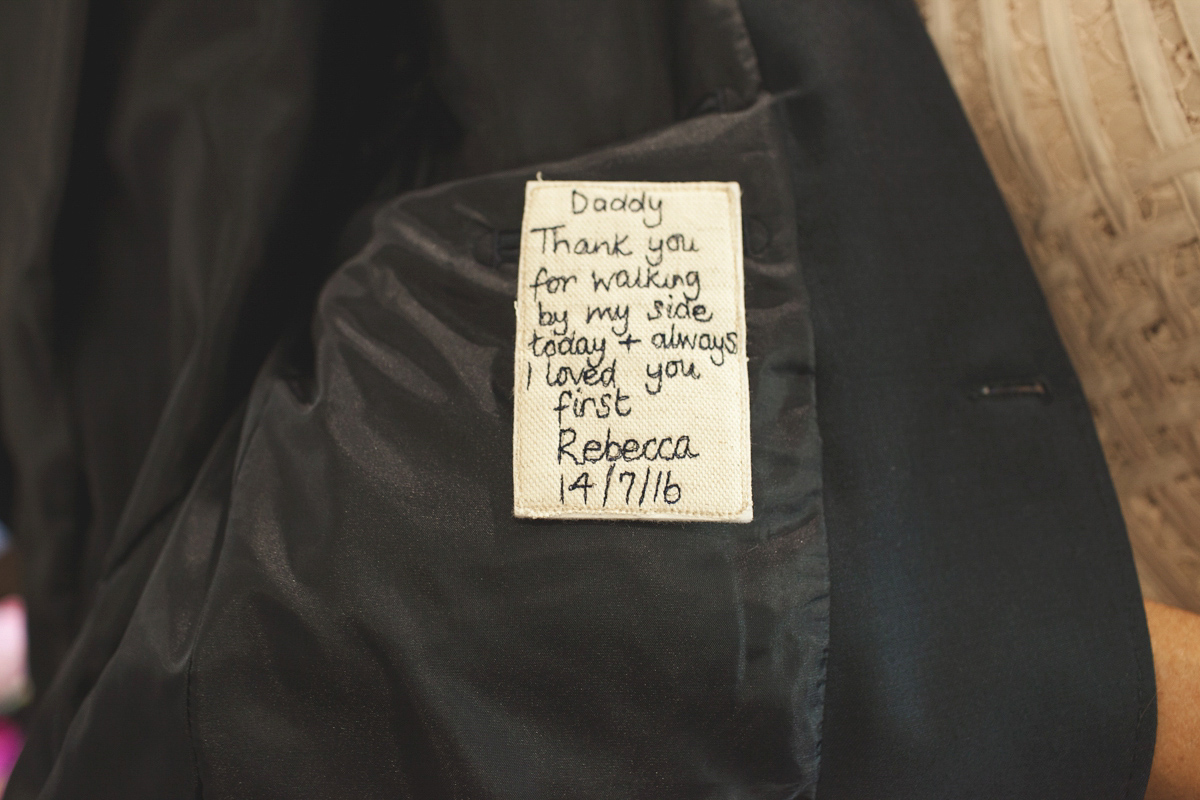 Daddy
Thank you
for walking
by my side
today + always
I loved you
first
Rebecca
14/7/16